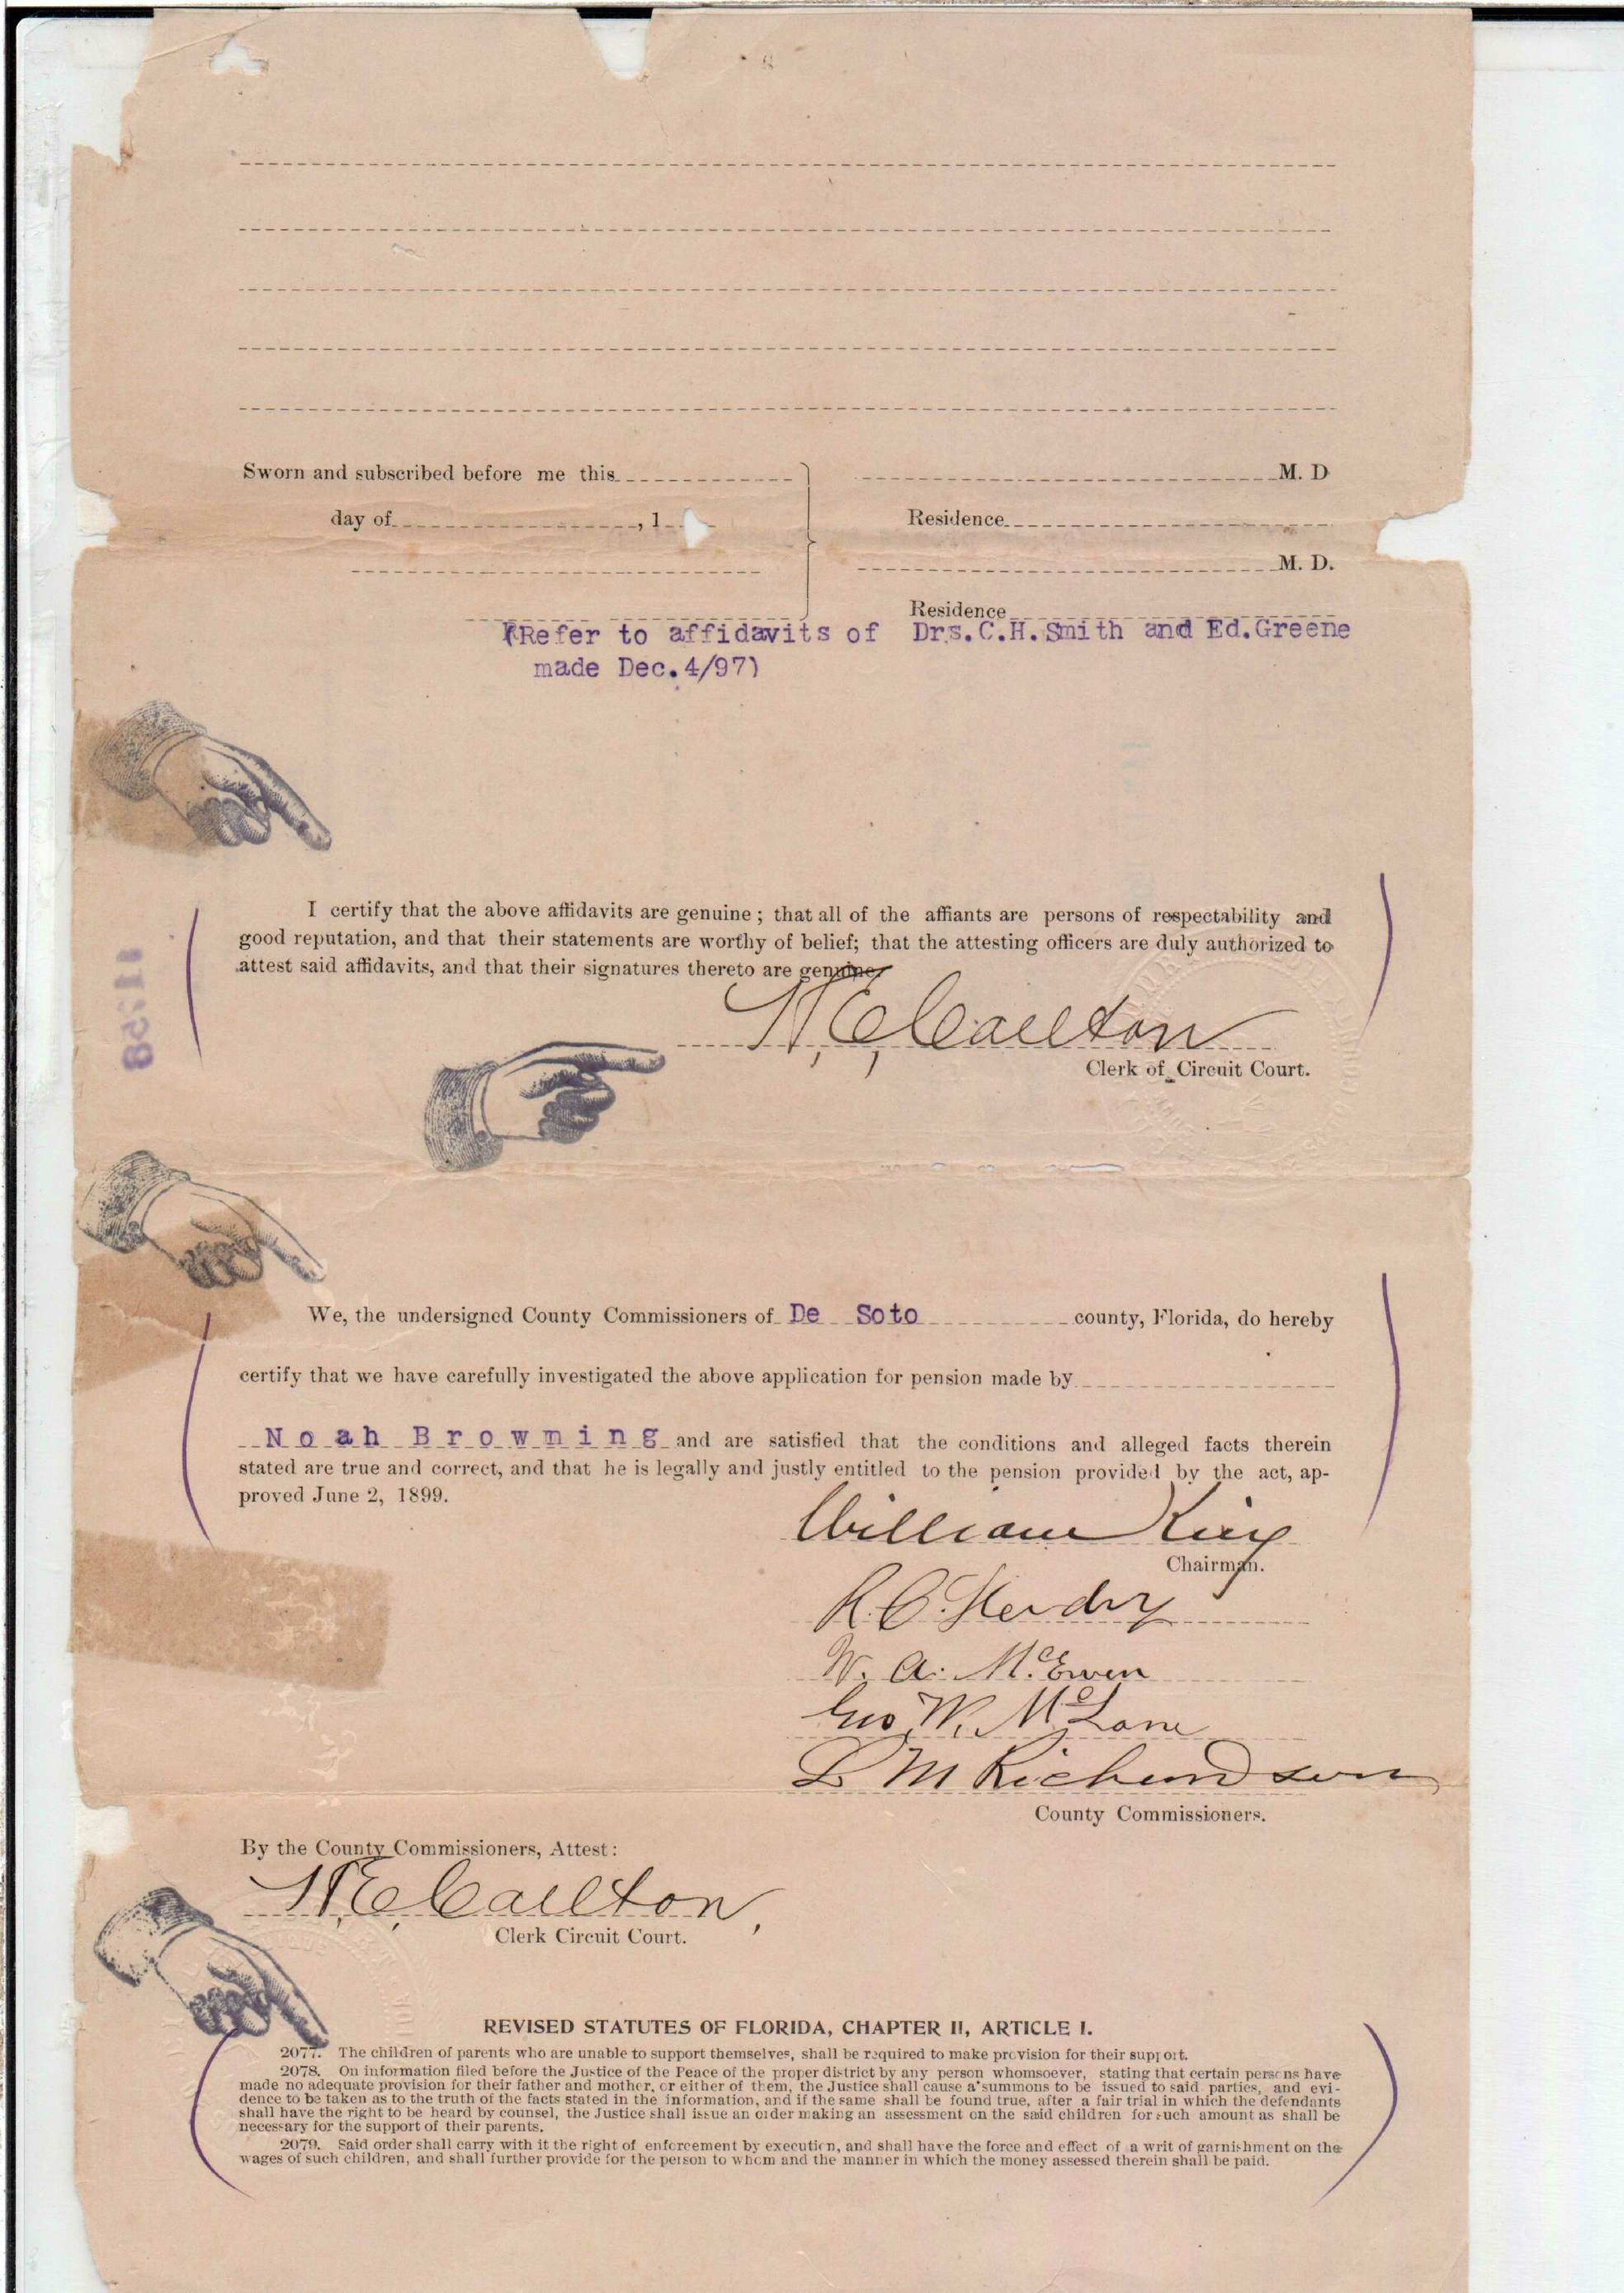 Sworn and subscribed before me this
M. D
day of , 1
Residence
M. D.
Residence
(Refer to affidavits of Drs.C.H.Smith and Ed.Greene
made Dec.4/97)
I certify that the above affidavits are genuine; that all of the affiants are persons of respectability and
good reputation, and that their statements are worthy of belief; that the attesting officers are duly authorized to
attest said affidavits, and that their signatures thereto are genuine.
Carlton
Clerk of Circuit Court.
11358
We, the undersigned County Commissioners of De Soto county, Florida, do hereby
certify that we have carefully investigated the above application for pension made by
Noah Browming and are satisfied that the conditions and alleged facts therein
stated are true and correct, and that he is legally and justly entitled to the pension provided by the act, ap-
proved June 2, 1899.
William King
Chairman.
R.C. Hendry
W. A. McEwen
Geo. W. McLane
L M Richardson
County Commissioners.
By the County Commissioners, Attest:
Carlton,
Clerk Circuit Court.
REVISED STATUTES OF FLORIDA, CHAPTER II, ARTICLE I.
2077. The children of parents who are unable to support themselves, shall be required to make provision for their support.
2078. On information filed before the Justice of the Peace of the proper district by any person whomsoever, stating that certain persons have
made no adequate provision for their father and mother, or either of them, the Justice shall cause a summons to be issued to said parties, and evi-
dence to be taken as to the truth of the facts stated in the information, and if the same shall be found true, after a fair trial in which the defendants
shall have the right to be heard by counsel, the Justice shall issue an order making an assessment on the said children for such amount as shall be
necessary for the support of their parents.
2079. Said order shall carry with it the right of enforcement by execution, and shall have the force and effect of a writ of garnishment on the
wages of such children, and shall further provide for the person to whom and the manner in which the money assessed therein shall be paid.